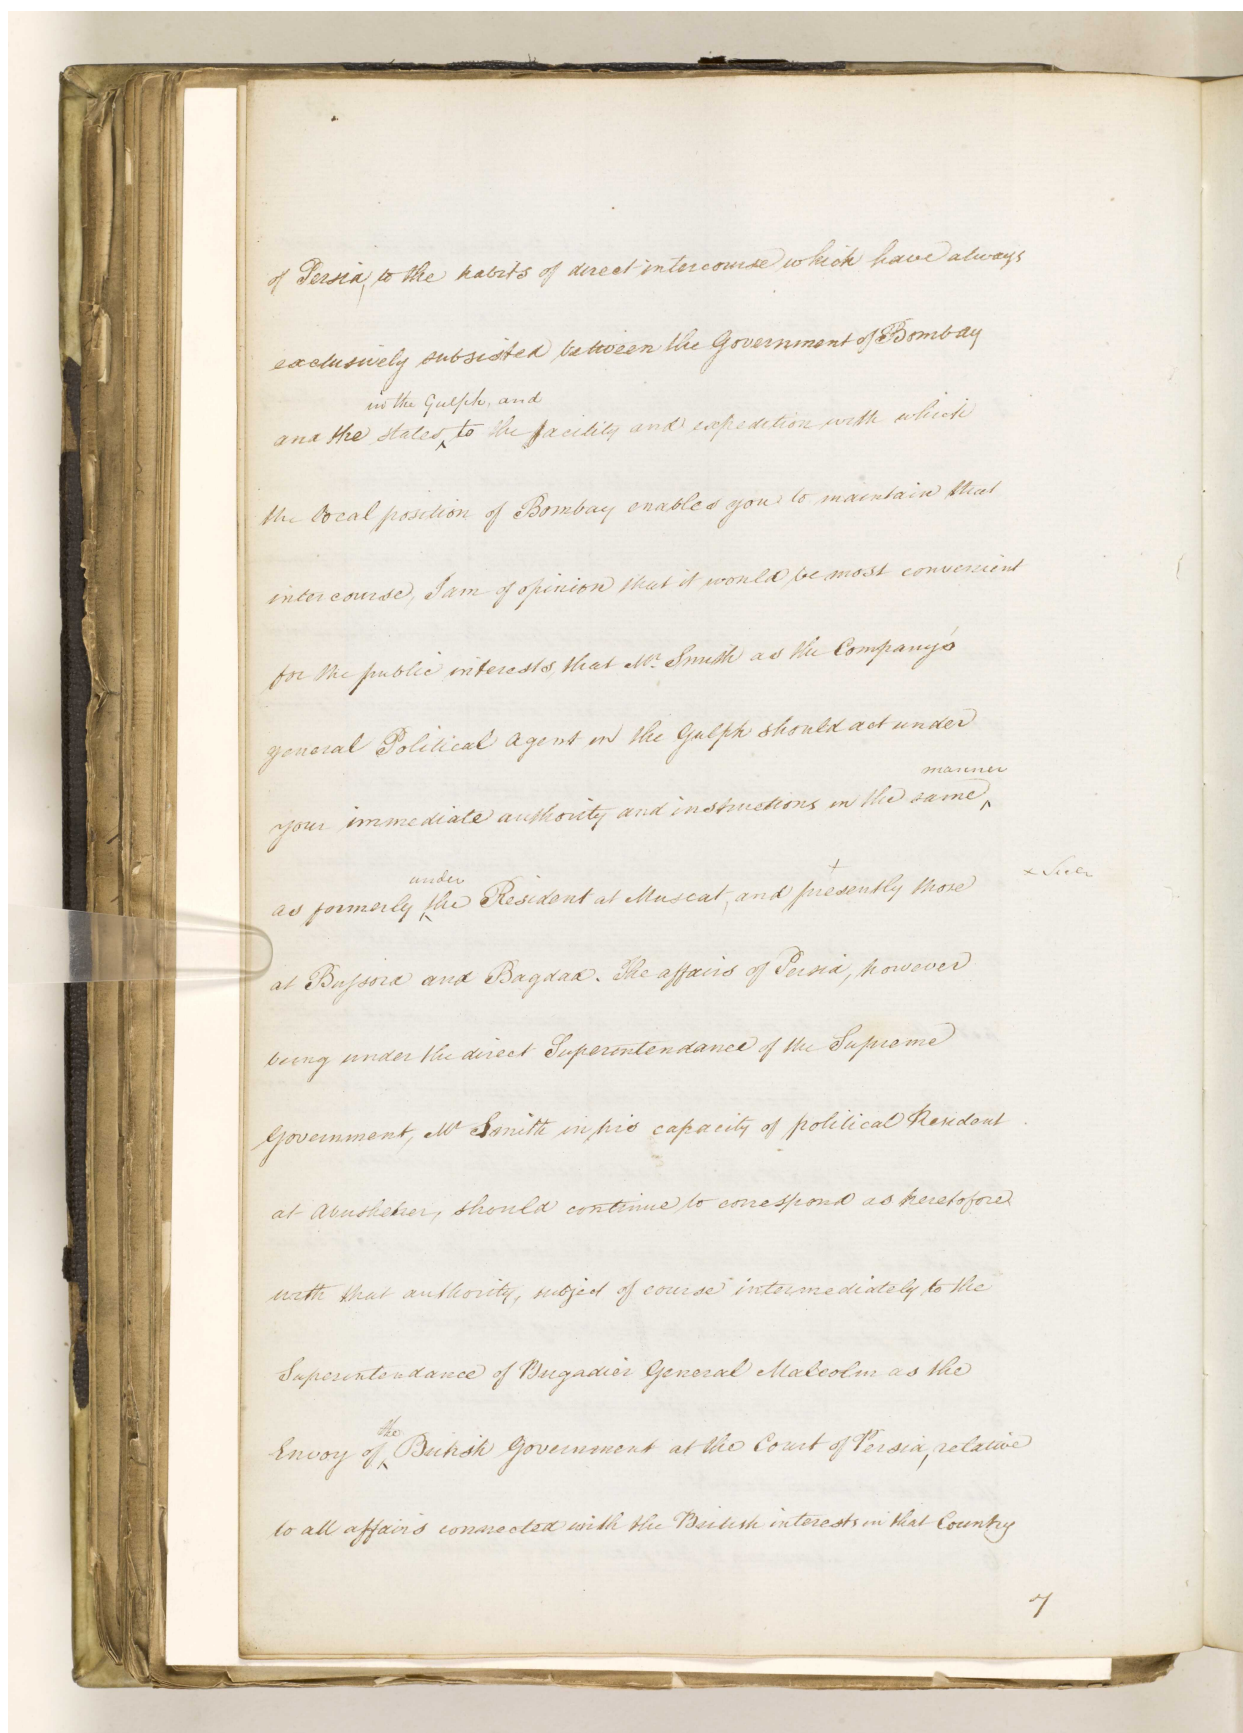 of Persia, to the habits of direct intercourse which have always
exclusively subsisted between the Government of Bombay
in the Gulph, and
and the states, to the facility and expedition with which
the local position of Bombay enables you to maintain that
intercourse, I am of opinion that it would be most convenient
for the public interests, that Mr. Smith as the Company's
general Political Agent in the Gulph should act under
manner
your immediate authority and instructions in the same
under
as formerly the Resident at Muscat, and presently those
at Bussora and Bagdad. The affairs of Persia, however
being under the direct Superintendance of the Supreme
Government, Mr Smith in his capacity of political Resident
at Abusheher, should continue to correspond as heretofore
with that authority, subject of course intermediately to the
Superintendance of Brigadier General Malcolm as the
the
Envoy of British Government at the Court of Persia, relative
to all affairs connected with the British interests in that Country
7